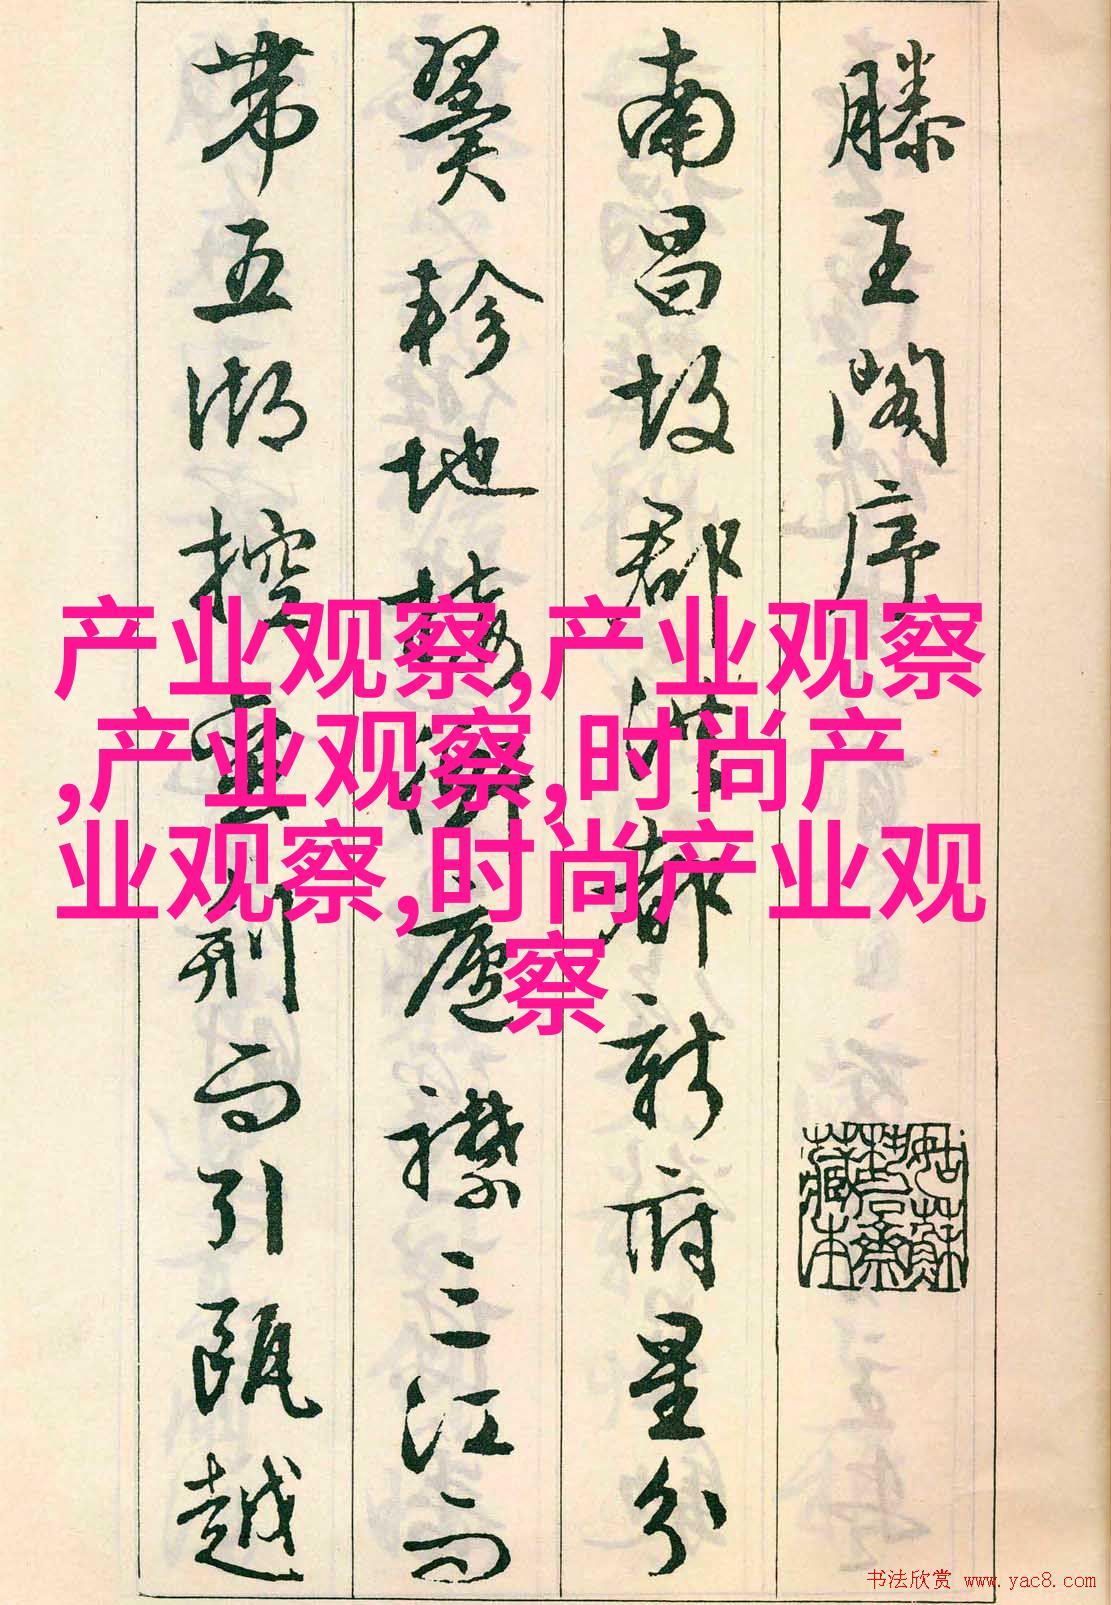 滕王閣序
南昌故郡洪都新府星分
翼軫地接衡廬襟三江而
帶五湖控蠻荊而引甌越
产业观察,产业观察
,产业观察,时尚产
业观察,时尚产业观
察
书法欣赏 www.yac8.com